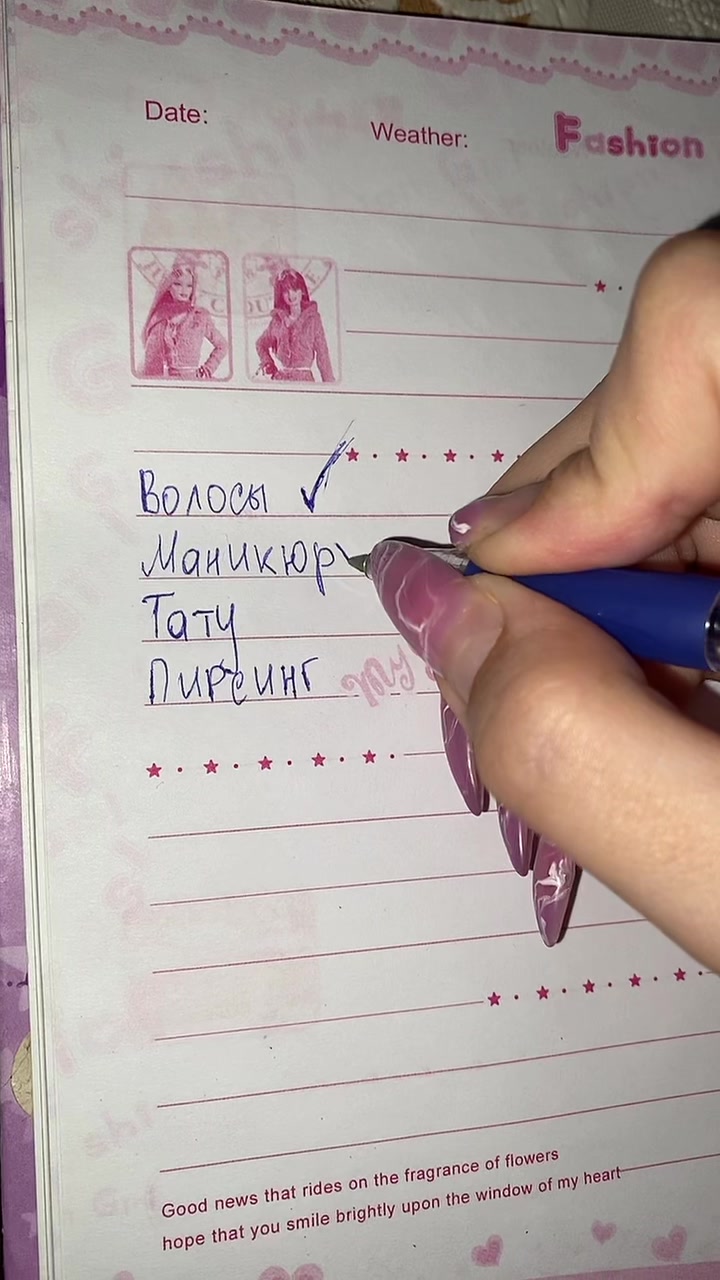 Date:
Weather:
Fashion
Волосы
Маникюр
Тату
Пирсинг
my
Good news that rides on the fragrance of flowers
hope that you smile brightly upon the window of my heart